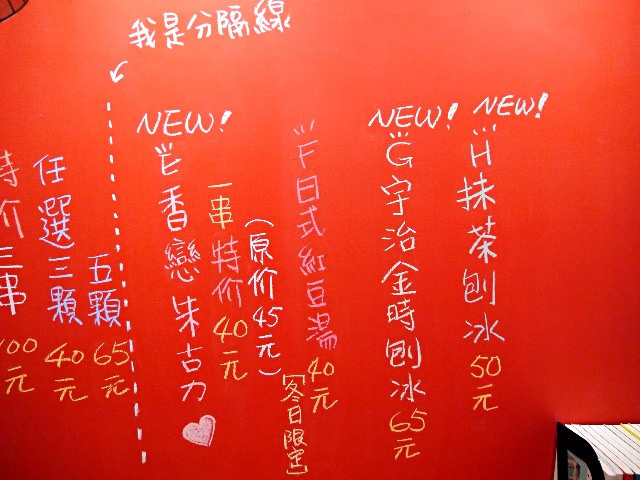 我是分隔線
NEW!
H抹茶刨冰 50元
NEW!
G宇治金時刨冰 65元
F日式紅豆湯 40元
【冬日限定】
NEW!
E香戀朱古力
一串特价 40元
(原价45元)
五顆 65元
任選三顆 40元
特价三串 100元